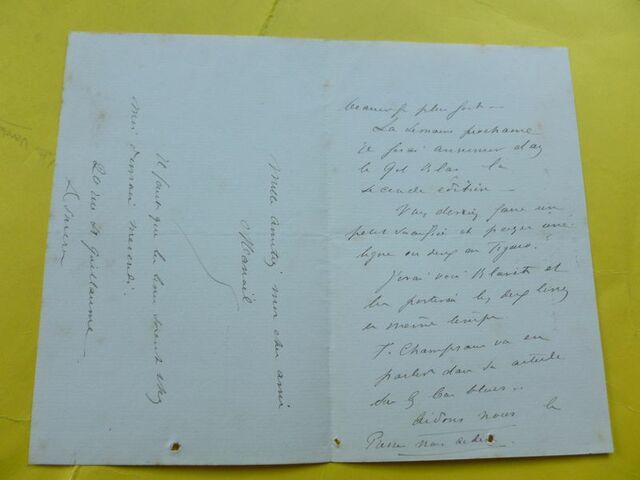 beaucoup plus fort —
La semaine prochaine
Je ferai annoncer dans
le Gil Blas la
seconde édition —
Vous devriez faire un
petit sacrifice et payer une
ligne ou deux au Figaro?
J'irai voir et
lui porterai les deux livres
en même temps
F. Champsaur va en
parler dans sa article
sur les bas bleus..
Aidons nous le
Passe nous aidera.
Mille amitiés mon cher ami
Il faut que les bons soient chez
moi demain mercredi.
20 rue St Guillaume